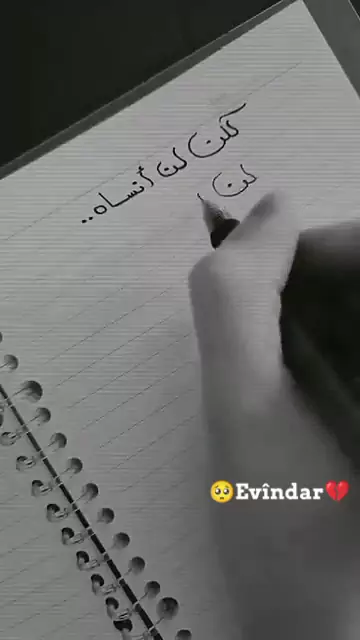 لكن لن أنساه..
لن
🥺Evîndar💔